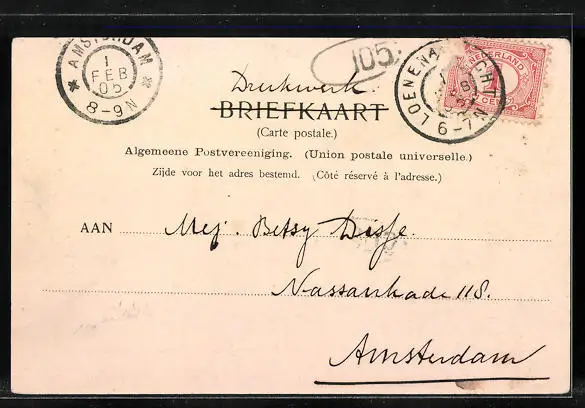 AMSTERDAM
1
FEB
05
8-9N
105
LOENEN A VECHT
6-7N
NEDERLAND
1
CENT
Drukwerk.
BRIEFKAART
(Carte postale.)
Algemeene Postvereeniging. (Union postale universelle.)
Zijde voor het adres bestemd. (Côté réservé à l'adresse.)
AAN Mej. Betsy
Nassaukade 118.
Amsterdam